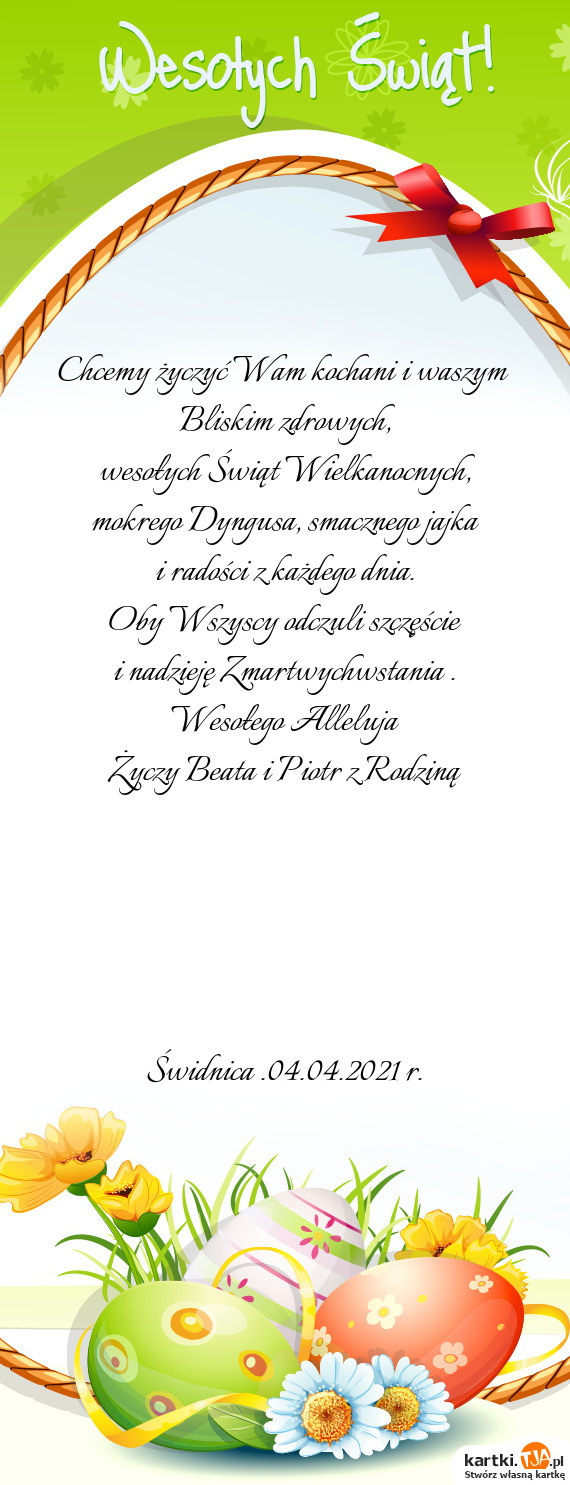 Wesołych Świąt!
Chcemy życzyć Wam kochani i waszym
Bliskim zdrowych,
wesołych Świąt Wielkanocnych,
mokrego Dyngusa, smacznego jajka
i radości z każdego dnia.
Oby Wszyscy odczuli szczęście
i nadzieję Zmartwychwstania .
Wesołego Alleluja
Życzy Beata i Piotr z Rodziną
Świdnica .04.04.2021 r.
kartki.TJA.pl
Stwórz własną kartkę